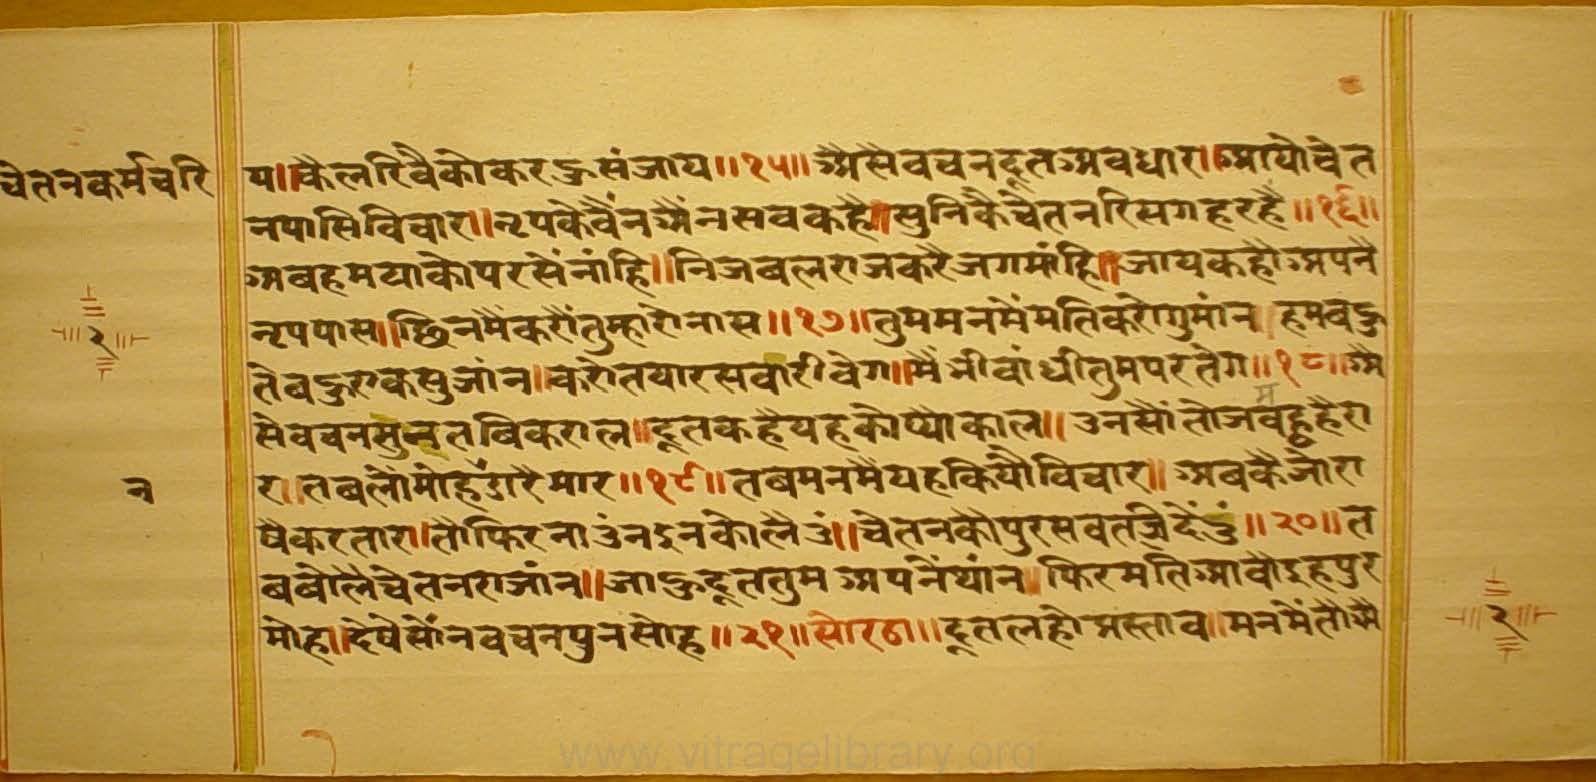 चेतनकर्मचरि
य॥कैलरिवैकोकरहुसंजाय॥१५॥अैसैवचनदूतअवधार॥आयौचेत
नपासिविचारा॥नृपकेवैंनअैंनसबकहै॥सुनिकैचेतनरिसगहरहै॥१६॥
अबहमयाकोपरसेंनांहि॥निजबलराजकरैजगमांहि॥जायकहौअपनै
नृपपास॥छिनमैंकरौंतुम्हारोनास॥१७॥तुममनमेंमतिकरोगुमांन॥हमबहु
तेबहुराकसुजांन॥करोतयारसवारीवेग॥मैंभीबांधीतुमपरतेग॥१८॥अै
सेवचनसुनतबिकराल॥दूतकहैयहकोप्यौकाल॥उनसौंतोजबह्वैहैरा
रा॥तबलौंमोहडारैमार॥१९॥तबमनमैयहकियौविचार॥अबकैजोरा
षैकरतार॥तौफिरनांउंनइनकोलैउं॥चेतनकौपुरसबतजिदेंउं॥२०॥त
बबोलैचेतनराजांन॥जाहुदूततुमअपनैंथांन॥फिरमतिआवौइहपुर
मोहि॥देषेसौंनबचनपुनसोह॥२१॥सोरठा॥दूतलहोप्रस्ताव॥मनमेंतौअै
२
न
२
www.vitragelibrary.org